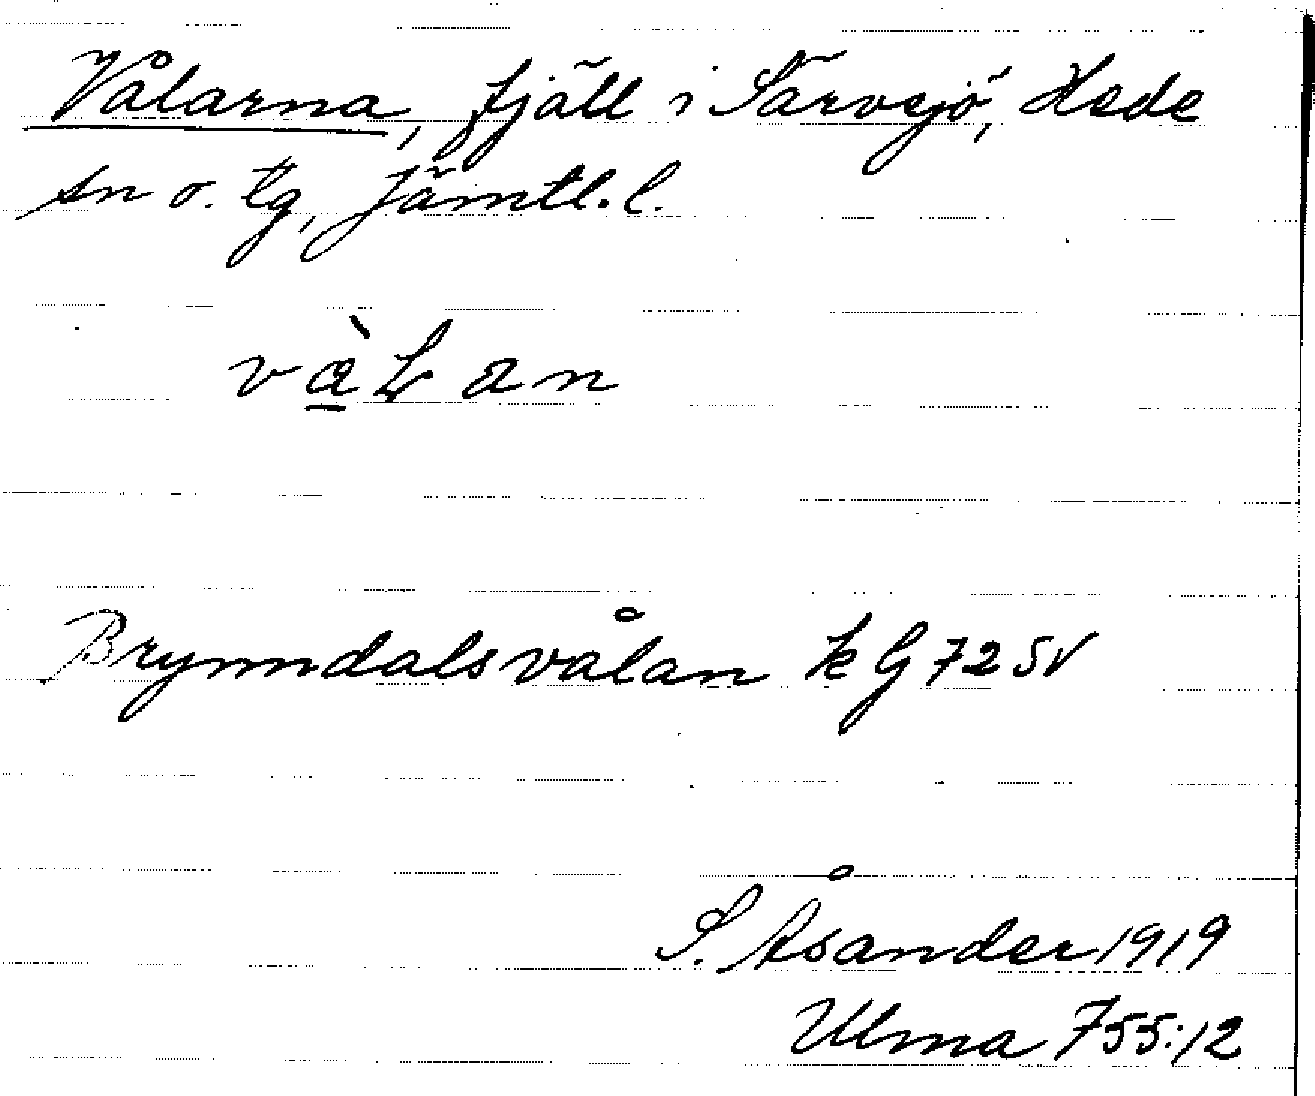 Vålarna, fjäll i Särvsjö, Hede
sn o. tg, Jämtl. l.
vàLan
Brynndalsvålan k G 72 SV
S. Åsander 1919
Ulma 755:12